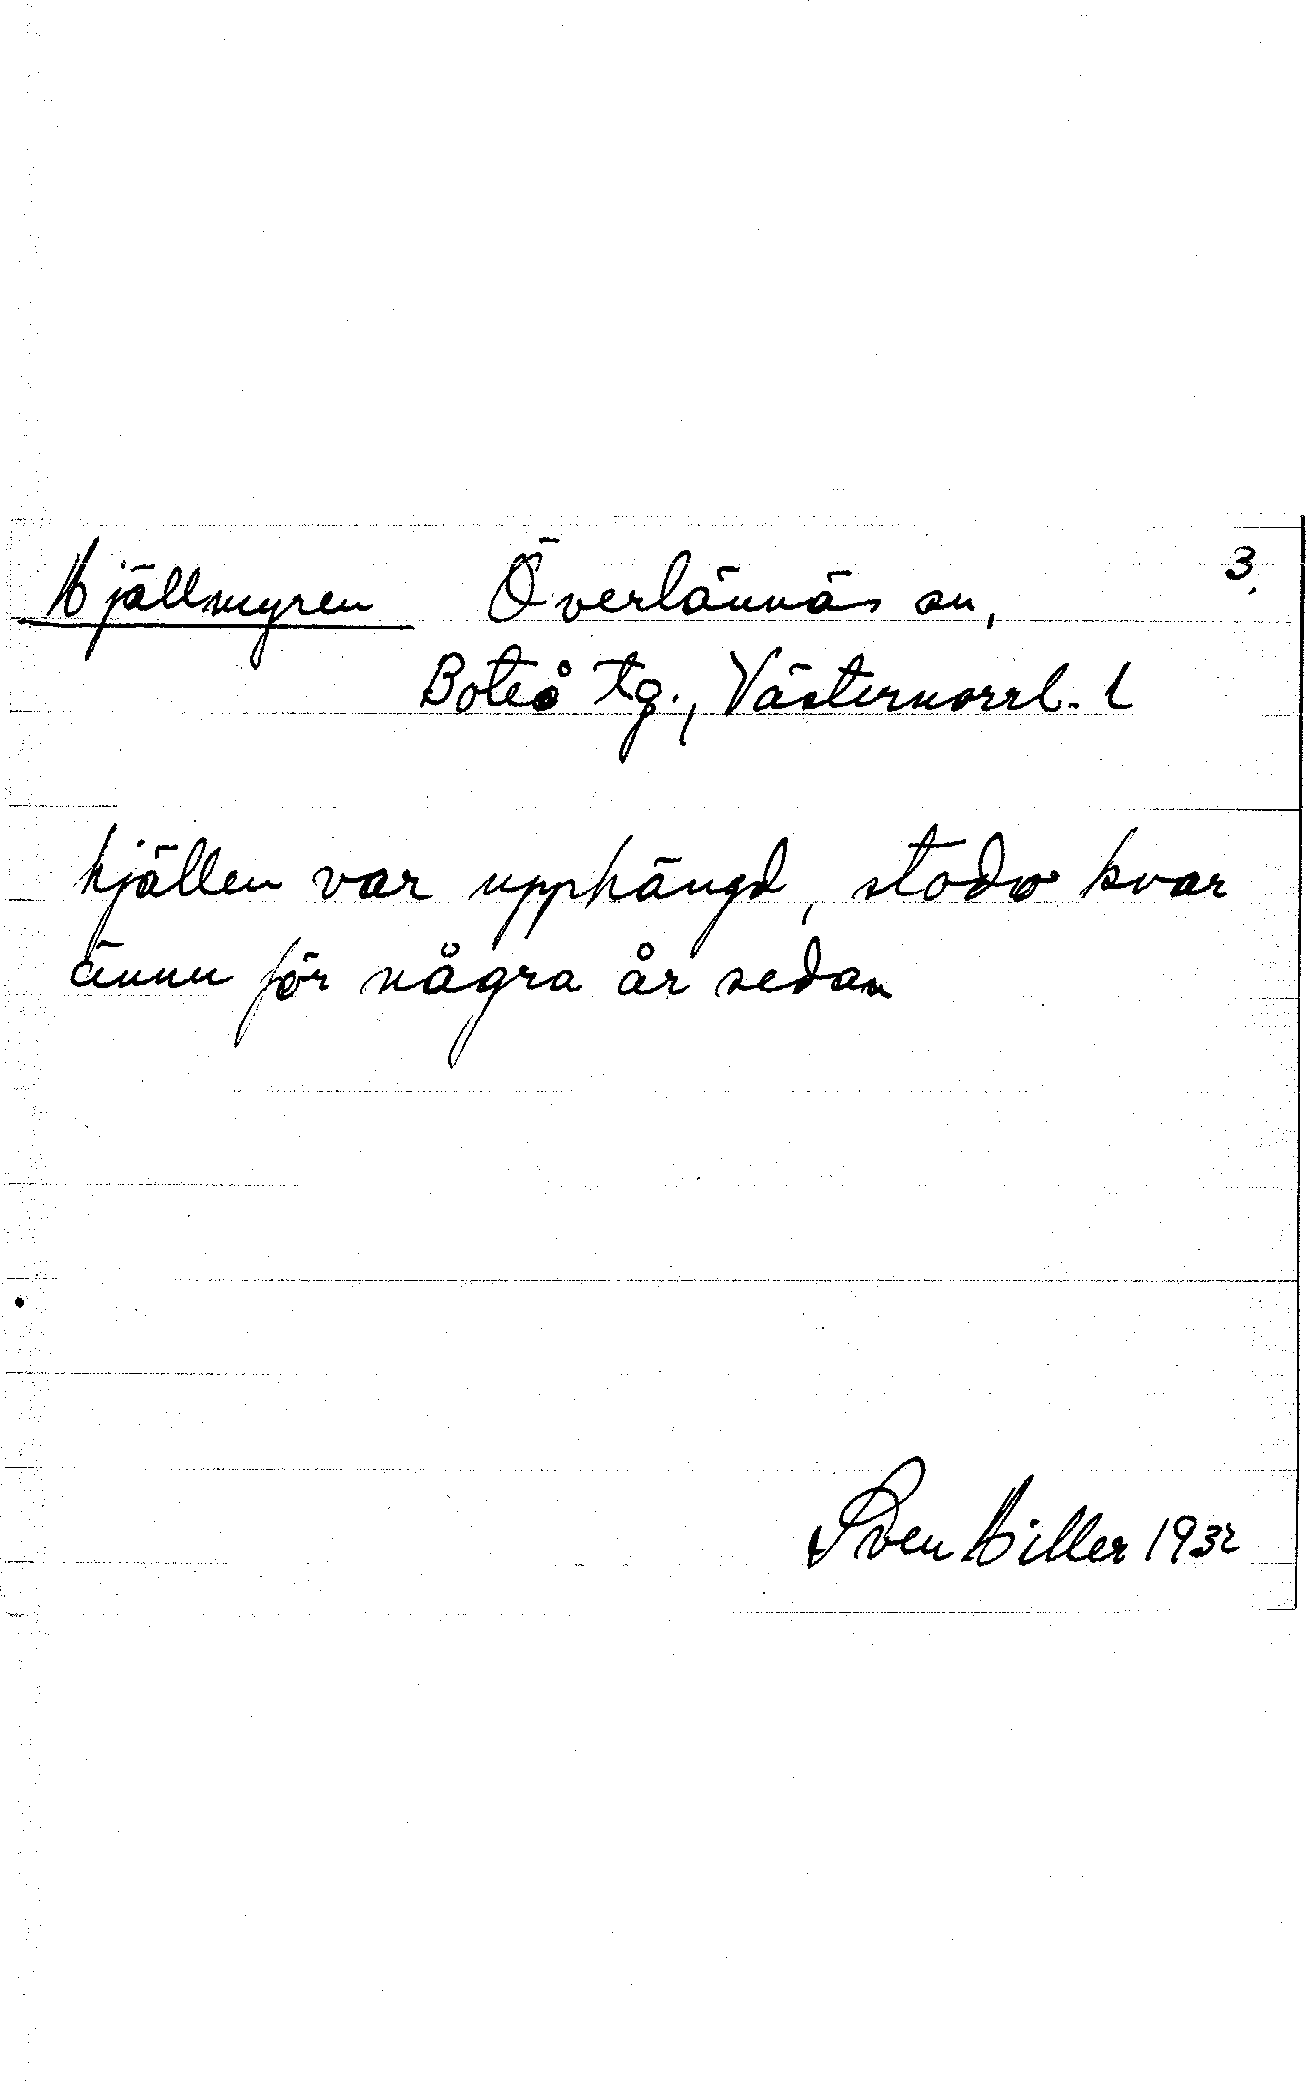 Hjällmyren Överlännäs sn, 3.
Boteå tg., Västernorrl. l
hjällen var upphängd, stodo kvar
ännu för några år sedan
Sven Hiller 1932